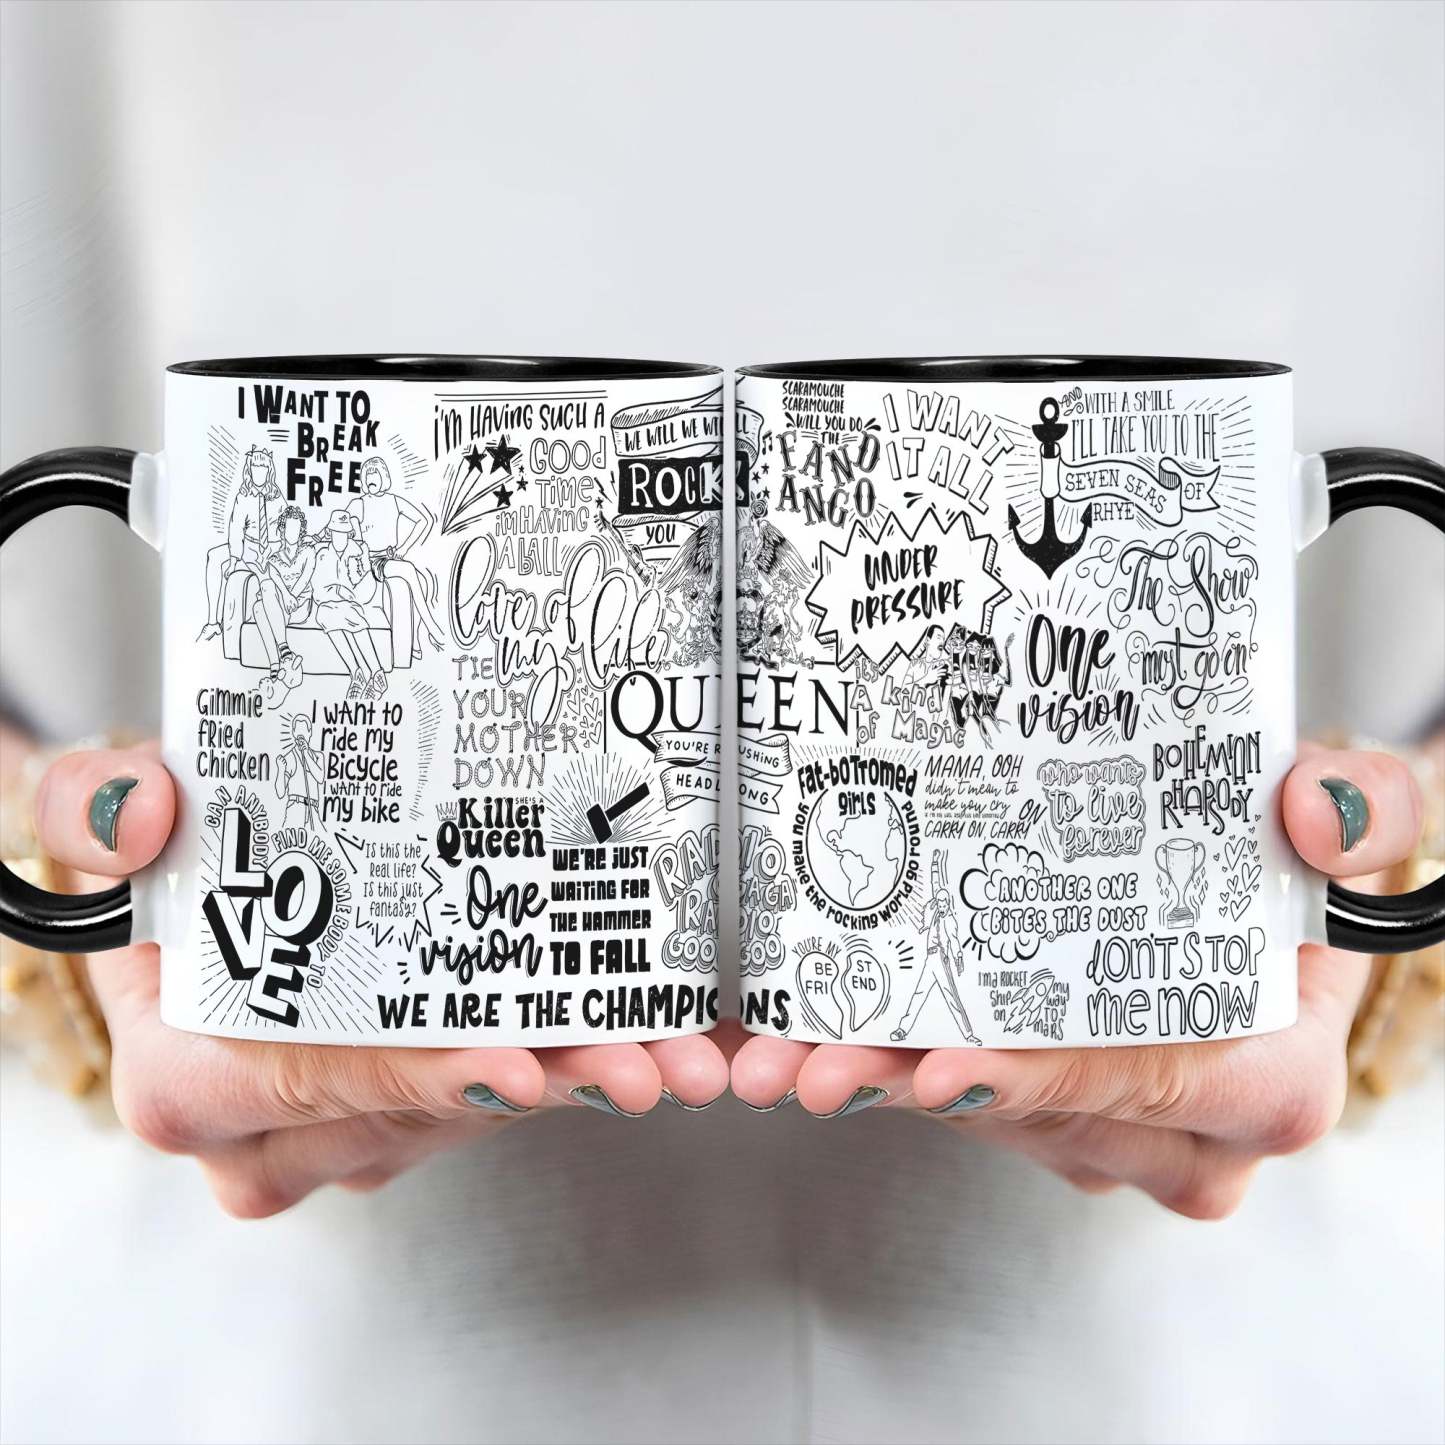 I WANT TO
BREAK
FREE
Gimmie
fried
chicken
I want to
ride my
Bicycle
I want to ride
my bike
CAN ANYBODY
FIND ME SOMEBODY TO
LOVE
Is this the
Real life?
Is this just
fantasy?
i'm HAVING SUCH A
GOOD
TIME
i'm HAVING
A BALL
love of
my life
TIE
YOUR
MOTHER
DOWN
SHE'S A
Killer
Queen
One
vision
WE'RE JUST
WAITING FOR
THE HAMMER
TO FALL
WE WILL WE WILL
ROCK
YOU
QUEEN
YOU'RE RUSHING
HEADLONG
RADIO
GAGA
RADIO
GOO GOO
WE ARE THE CHAMPIONS
SCARAMOUCHE
SCARAMOUCHE
WILL YOU DO
THE
FAND
ANGO
I WANT
IT ALL
AND WITH A SMILE
I'LL TAKE YOU TO THE
SEVEN SEAS OF
RHYE
UNDER
PRESSURE
it's
A
kind
of
Magic
One
vision
The Show
must go on
fat-bottomed
girls
you make the rocking world go round
MAMA, OOH
didn't mean to
make you cry
CARRY ON, CARRY ON
who wants
to live
forever
BOHEMIAN
RHAPSODY
ANOTHER ONE
BITES THE DUST
YOU'RE MY
BE ST
FRI END
I'm a ROCKET
Ship
on
my
way
TO
MARS
DON'T STOP
me NOW